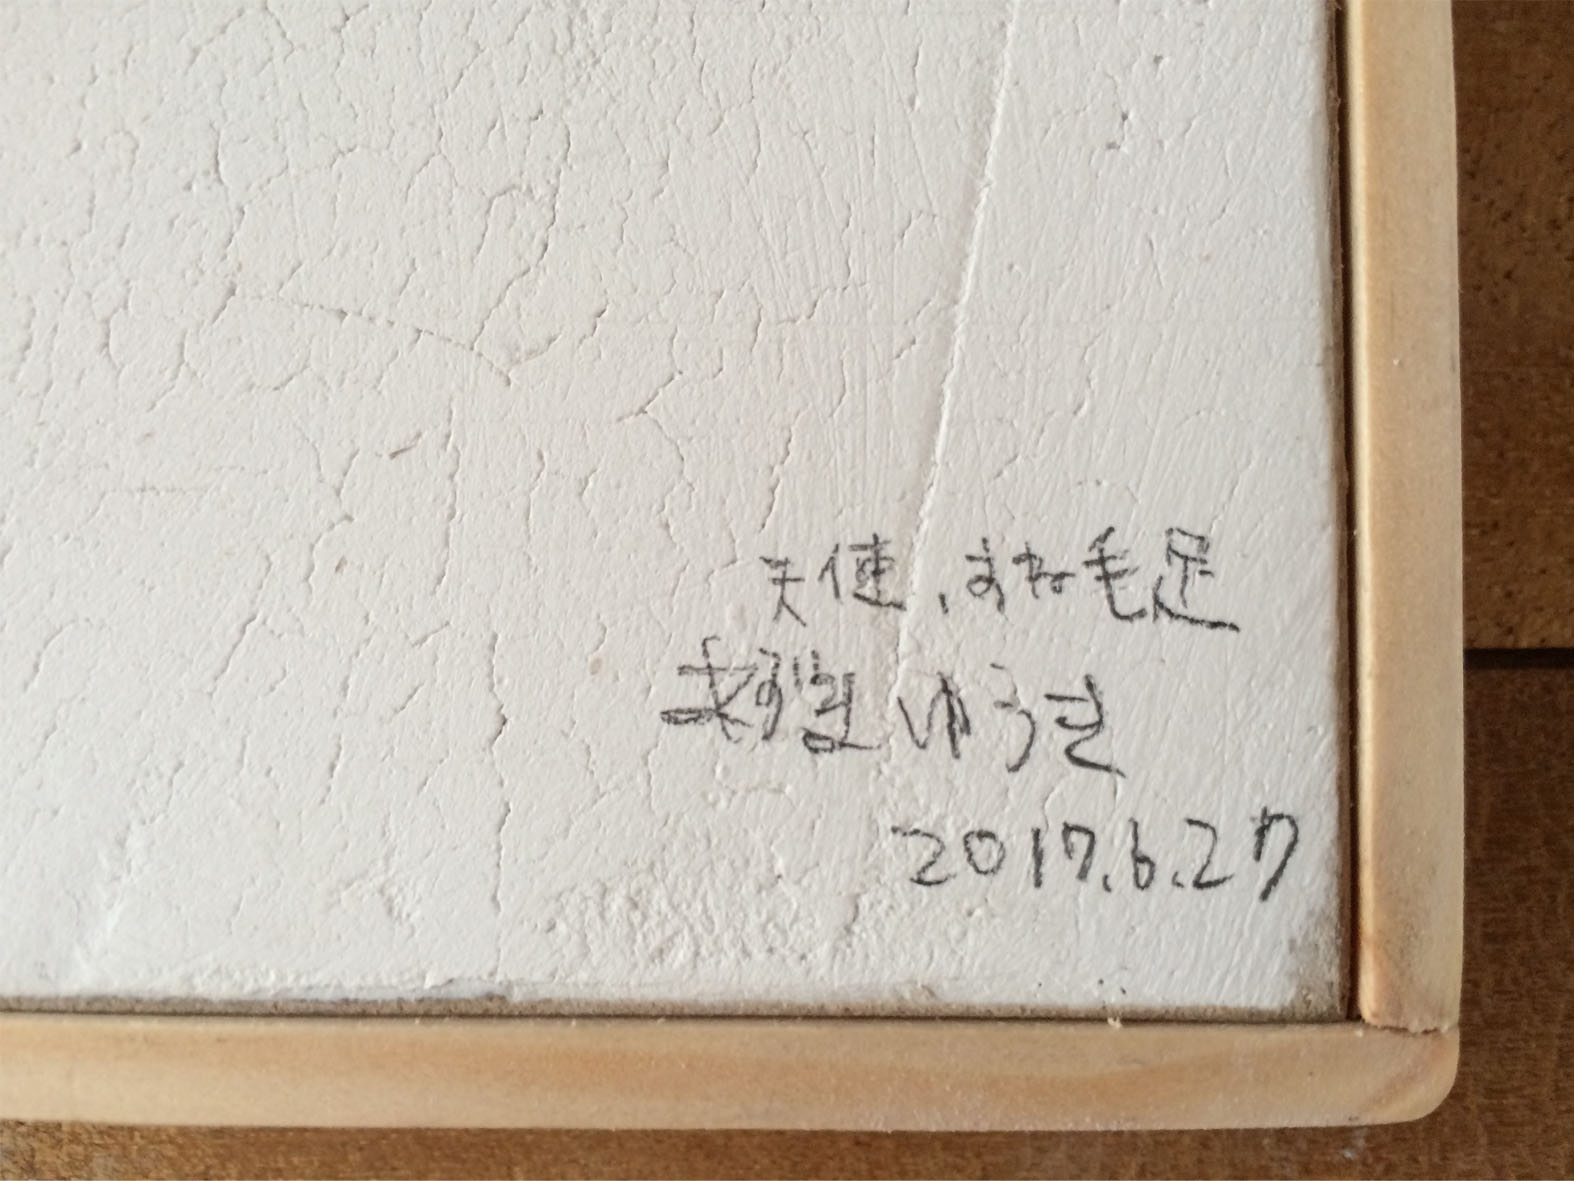 天使、すね毛足
ゆうき
2017.6.27